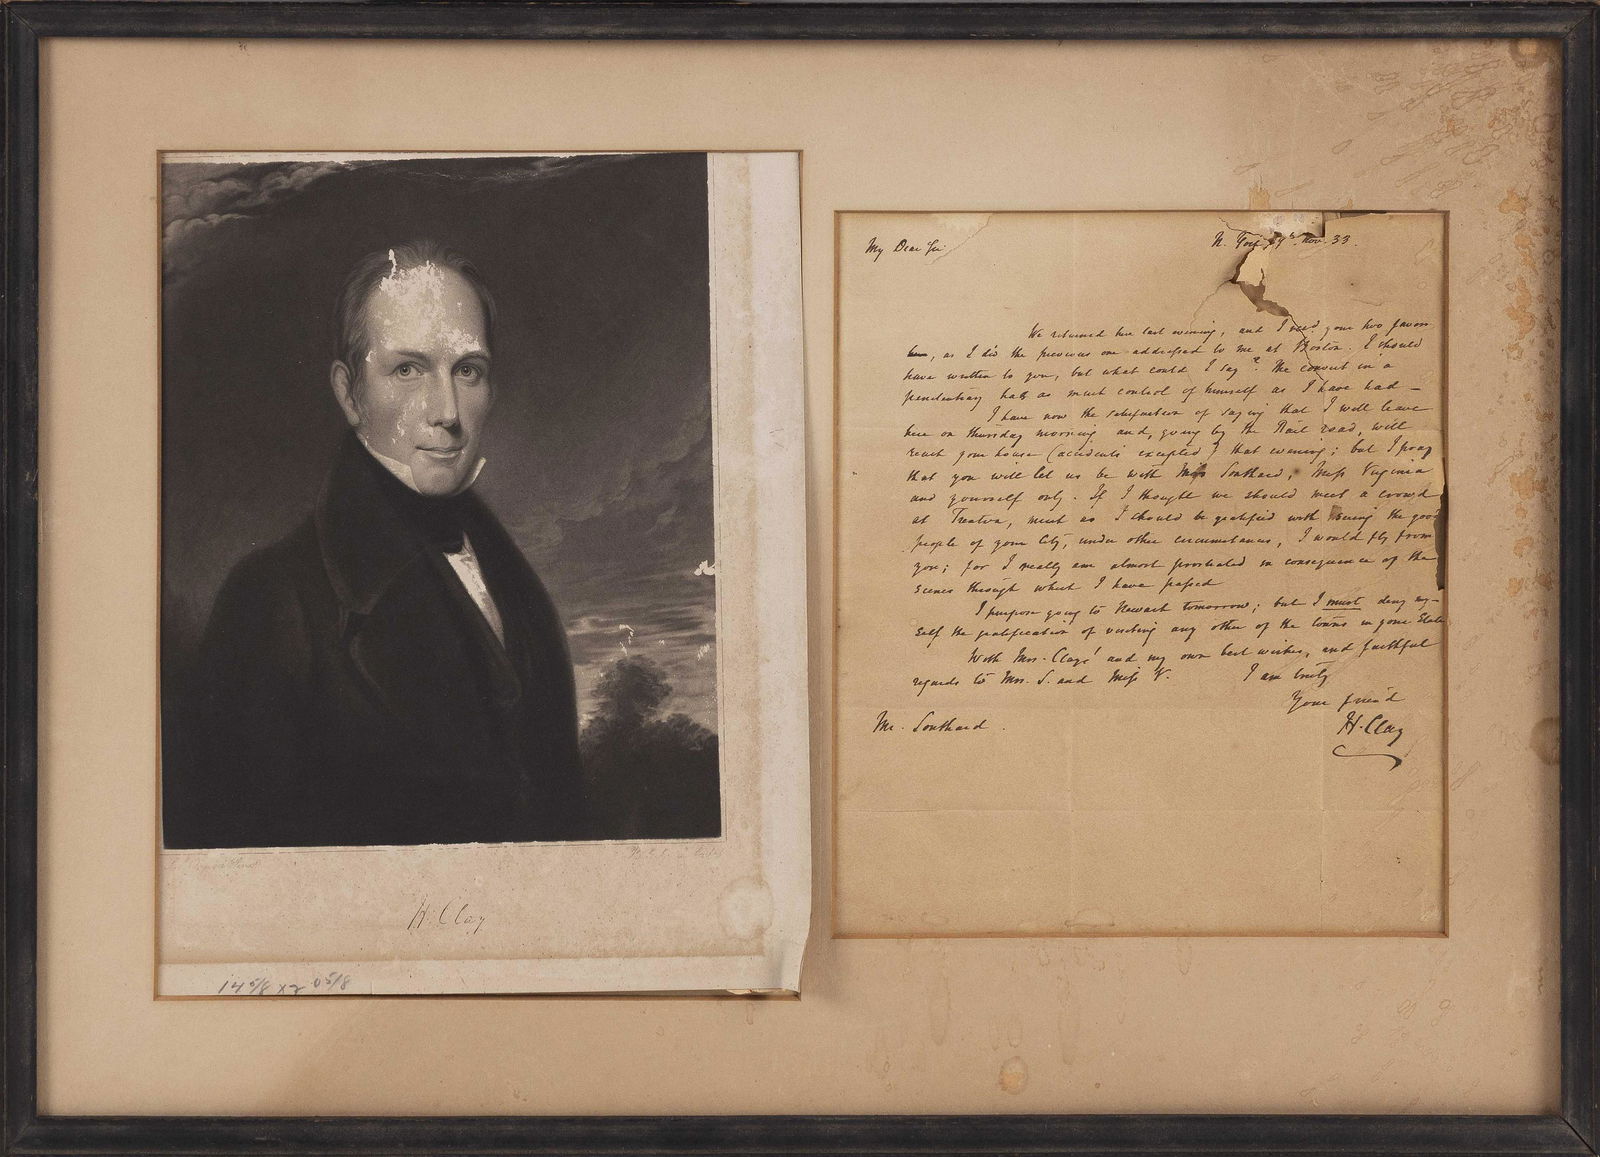 My Dear Sir
N. York Nov. 33.
We returned here last evening, and I recd. your two favors
, as I did the previous one addressed to me at Boston. I should
have written to you, but what could I say? The convict in a
penitentiary has as much control of himself as I have had –
I have now the satisfaction of saying that I will leave
here on thursday morning and, going by the Rail road, will
reach your house (accidents excepted) that evening; but I pray
that you will let us be with Mrs Southard, Miss Virginia
and yourself only. If I thought we should meet a crowd
at Trenton, much as I should be gratified with seeing the good
people of your City, under other circumstances, I would fly from
you; for I really am almost prostrated in consequence of the
scenes through which I have passed
I purpose going to Newark tomorrow; but I must deny my-
self the gratification of visiting any other of the towns in your State
With Mrs. Clays' and my own best wishes, and faithful
regards to Mrs. S. and Miss V. I am truly
Your friend
H. Clay
Mr. Southard.
H. Clay
14 5/8 x